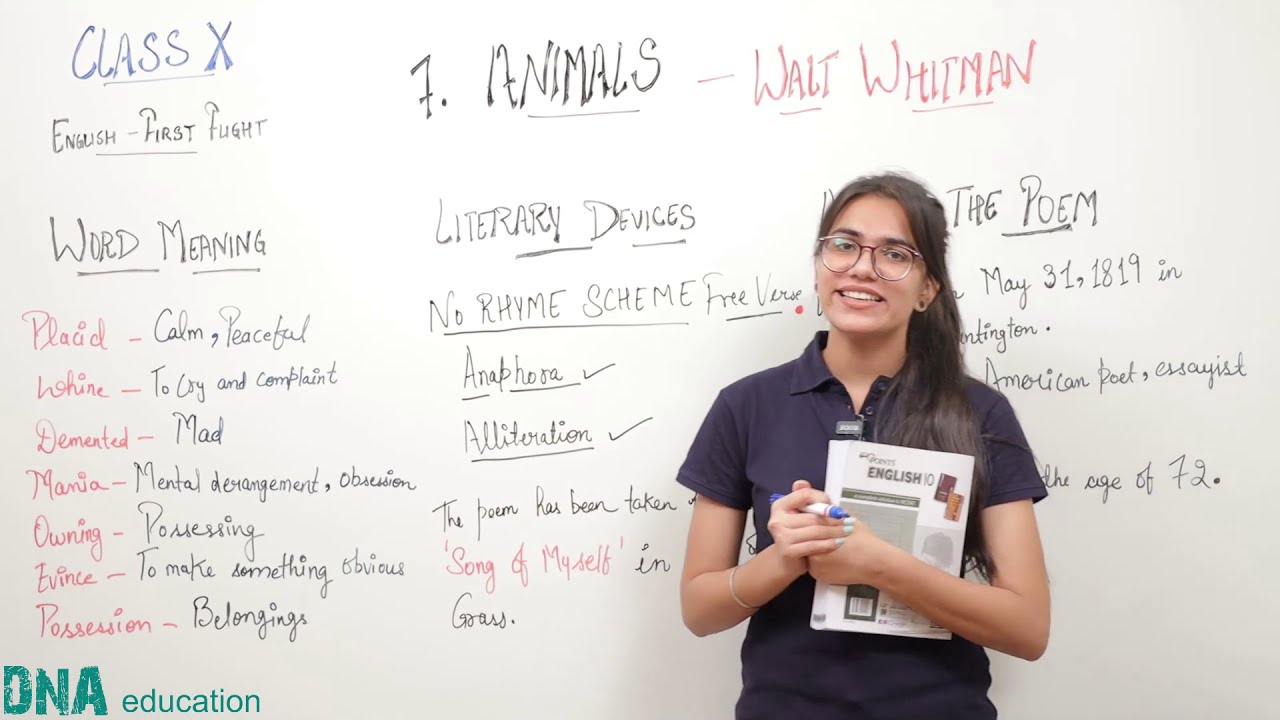 CLASS X
ENGLISH - FIRST FLIGHT
7. ANIMALS - WALT WHITMAN
WORD MEANING
Placid - Calm, Peaceful
Whine - To Cry and complaint
Demented - Mad
Mania - Mental derangement, obsession
Owning - Possessing
Evince - To make something obvious
Possession - Belongings
LITERARY DEVICES
NO RHYME SCHEME Free Verse
Anaphora ✓
Alliteration ✓
The poem has been taken
'Song of Myself' in
Grass.
THE POEM
May 31, 1819 in
American poet, essayist
the age of 72.
POINTS
ENGLISH 10
DNA education